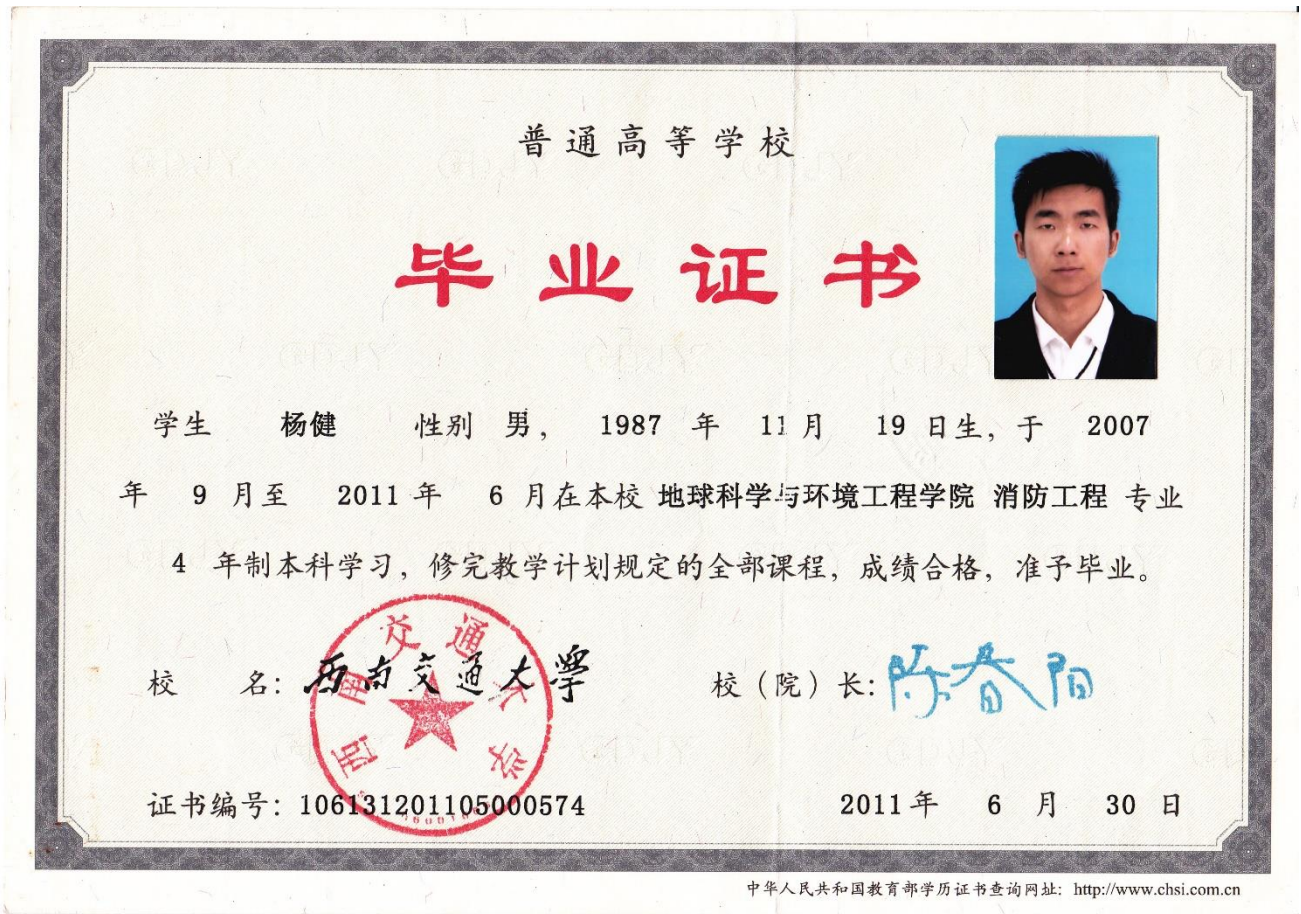 普通高等学校
毕业证书
学生 杨健 性别 男， 1987 年 11 月 19 日生，于 2007
年 9 月至 2011 年 6 月在本校 地球科学与环境工程学院 消防工程 专业
4 年制本科学习，修完教学计划规定的全部课程，成绩合格，准予毕业。
西南交通大学
校 名：西南交通大學 校（院）长：陈春阳
证书编号：106131201105000574 2011 年 6 月 30 日
中华人民共和国教育部学历证书查询网址：http://www.chsi.com.cn